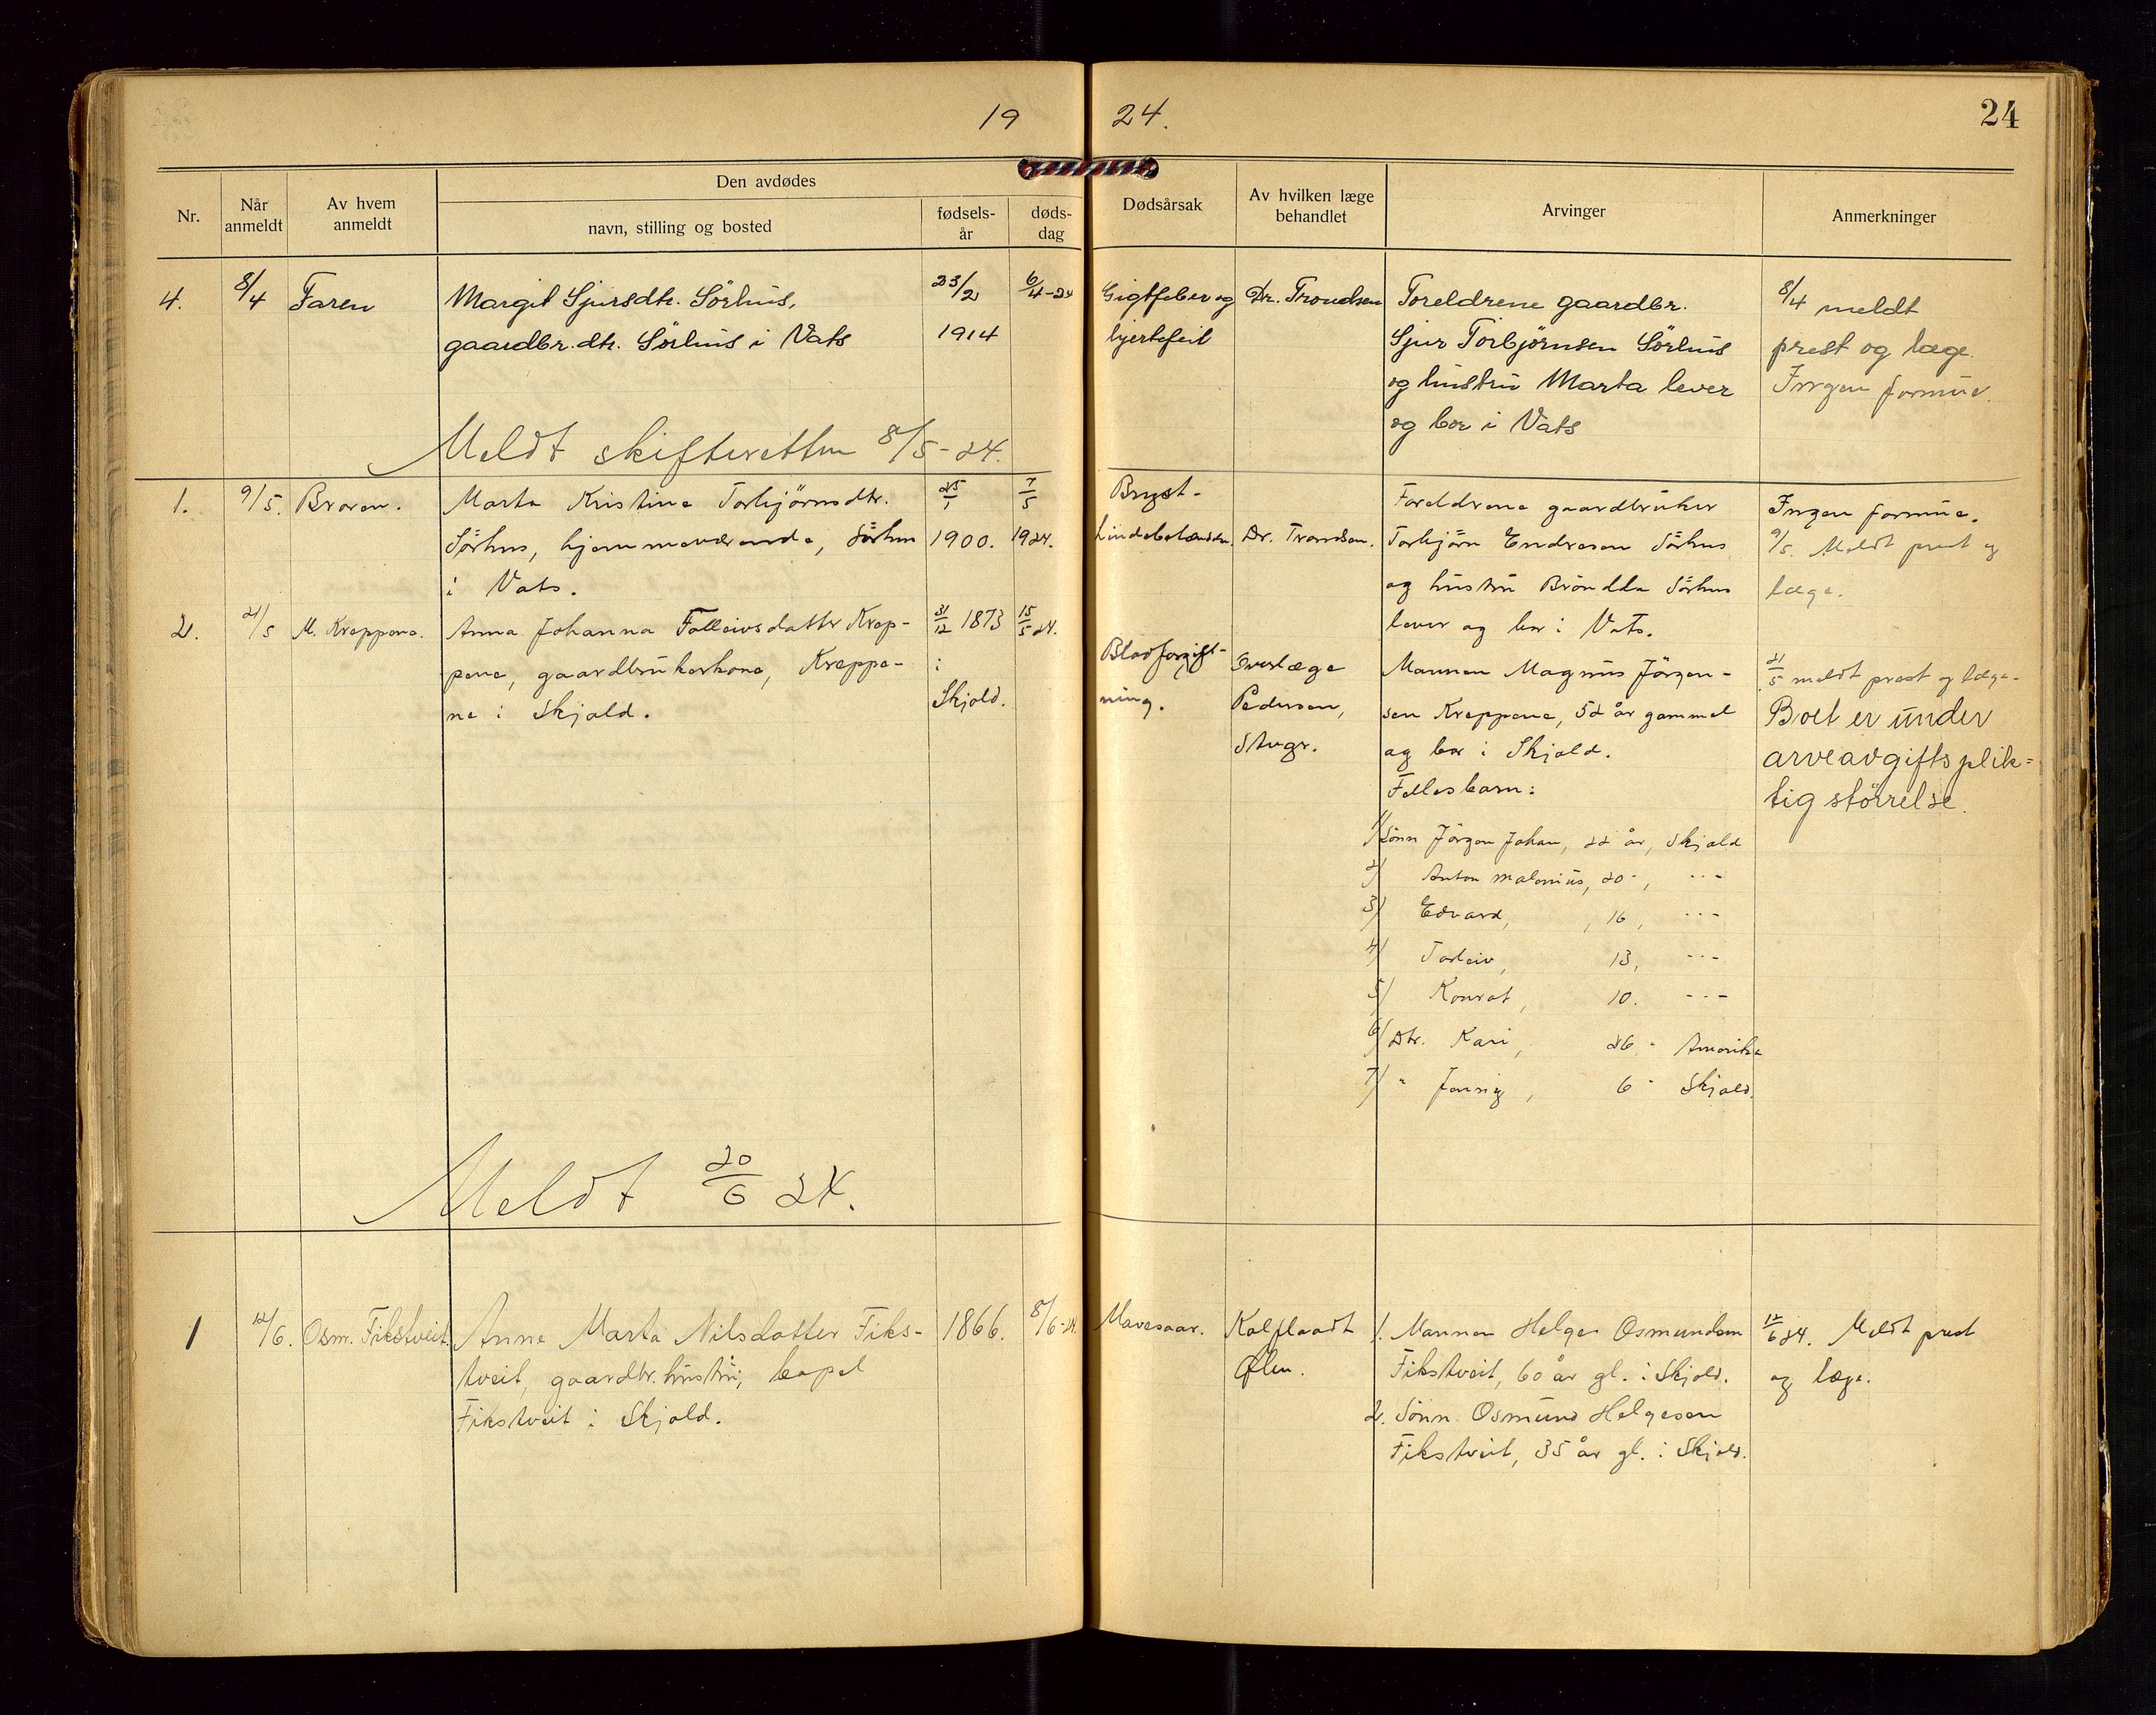 19 24.
24
Nr.
Når anmeldt
Av hvem anmeldt
Den avdødes
navn, stilling og bosted
fødsels-år
døds-dag
Dødsårsak
Av hvilken læge behandlet
Arvinger
Anmerkninger
4. 8/4 Faren
Margit Sjursdtr. Sörhus,
gaardbr. dtr. Sörhus i Vats
23/2
1914
6/4-24
Gigtfeber og
hjertefeil
Dr. Trondsen
Foreldrene gaardbr.
Sjur Torbjörnsen Sörhus
og hustru Marta lever
og bor i Vats
8/4 meldt
prest og læge.
Ingen formue.
Meldt skifteretten 8/5-24.
1. 9/5. Broren.
Marta Kristine Torbjörnsdtr.
Sörhus, hjemmeværende, Sörhus
i Vats.
25/1
1900.
7/5
1924.
Bryst-
hindebetændelse.
Dr. Trondsen.
Foreldrene gaardbruker
Torbjörn Endresen Sörhus
og hustru Bröndda Sörhus
lever og bor i Vats.
Ingen formue.
9/5. Meldt prest og
læge.
2. 21/5 M. Kreppene.
Anna Johanna Folleivsdatter Krep-
pene, gaardbrukerkone, Kreppe-
ne i Skjold.
31/12 1873
i
Skjold.
15/5 24.
Blodforgift-
ning.
Overlæge
Pedersen,
Stvgr.
Mannen Magnus Jörgen-
sen Kreppene, 52 år gammel
og bor i Skjold.
Fellesbarn:
1/ Sönn Jörgen Johan, 22 år, Skjold
2/ Anton Malenius, 20 -, - - -
3/ Edvard, , 16, - - -
4/ Torleiv, 13, - - -
5/ Konrat, 10. - - -
6/ Dtr. Kari, 26 " Amerika
7/ " Jenny, 6 " Skjold.
21/5 meldt prest og læge.
Boet er under
arveavgiftsplik=
tig störrelse.
Meldt 20/6 24.
1 12/6. Osm. Fikstveit.
Anne Marta Nilsdatter Fiks-
tveit, gaardbr. hustru, bopel
Fikstveit i Skjold.
1866.
8/6-24.
Mavesaar.
Kalflaadt
Ølen.
1. Mannen Helge Osmundsen
Fikstveit, 60 år gl. i Skjold.
2. Sönn Osmund Helgesen
Fikstveit, 35 år gl. i Skjold.
12/6 24. Meldt prest
og læge.